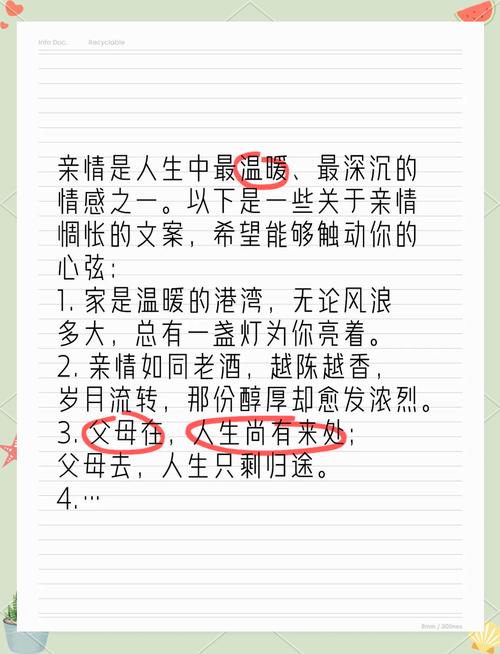 Info Doc. Recyclable
亲情是人生中最温暖、最深沉的
情感之一。以下是一些关于亲情
惆怅的文案，希望能够触动你的
心弦：
1. 家是温暖的港湾，无论风浪
多大，总有一盏灯为你亮着。
2. 亲情如同老酒，越陈越香，
岁月流转，那份醇厚却愈发浓烈。
3. 父母在，人生尚有来处；
父母去，人生只剩归途。
4.…
8mm / 30lines